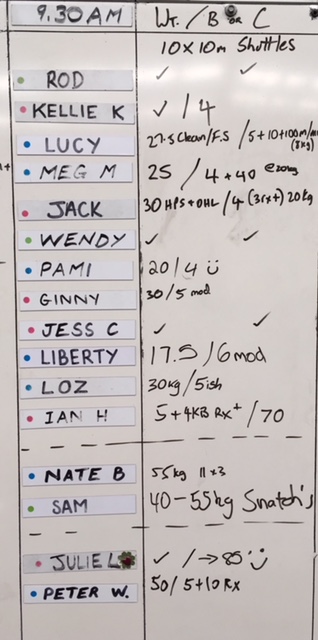 9.30AM Wt. / B or C
10 x 10m Shuttles
ROD ✓ ✓
KELLIE K ✓ / 4
LUCY 27.5 Clean/F.S / 5+10+100m/
(8kg)
MEG M 25 / 4 + 40 @20kg
JACK 30 HPS + OHL / 4 (3rx+) 20kg
WENDY ✓ ✓
PAMI 20/4 ü
GINNY 30/5 mod
JESS C ✓ ✓
LIBERTY 17.5/6mod
LOZ 30kg/5ish
IAN H 5+4KB Rx+ / 70
NATE B 55kg 11x3
SAM 40-55kg Snatch's
JULIE L ✓ / → 85 ü
PETER W. 50/5+10 Rx